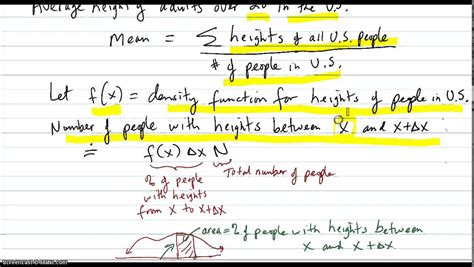 Average height of adults over 20 in the U.S.
Mean = Σ heights of all U.S. people
# of people in U.S.
Let f(x) = density function for heights of people in U.S.
Number of people with heights between x and x+Δx
≈ f(x) Δx N
% of people
with heights
from x to x+Δx
Total number of people
area = % of people with heights between
x and x+Δx
Screencast-O-Matic.com